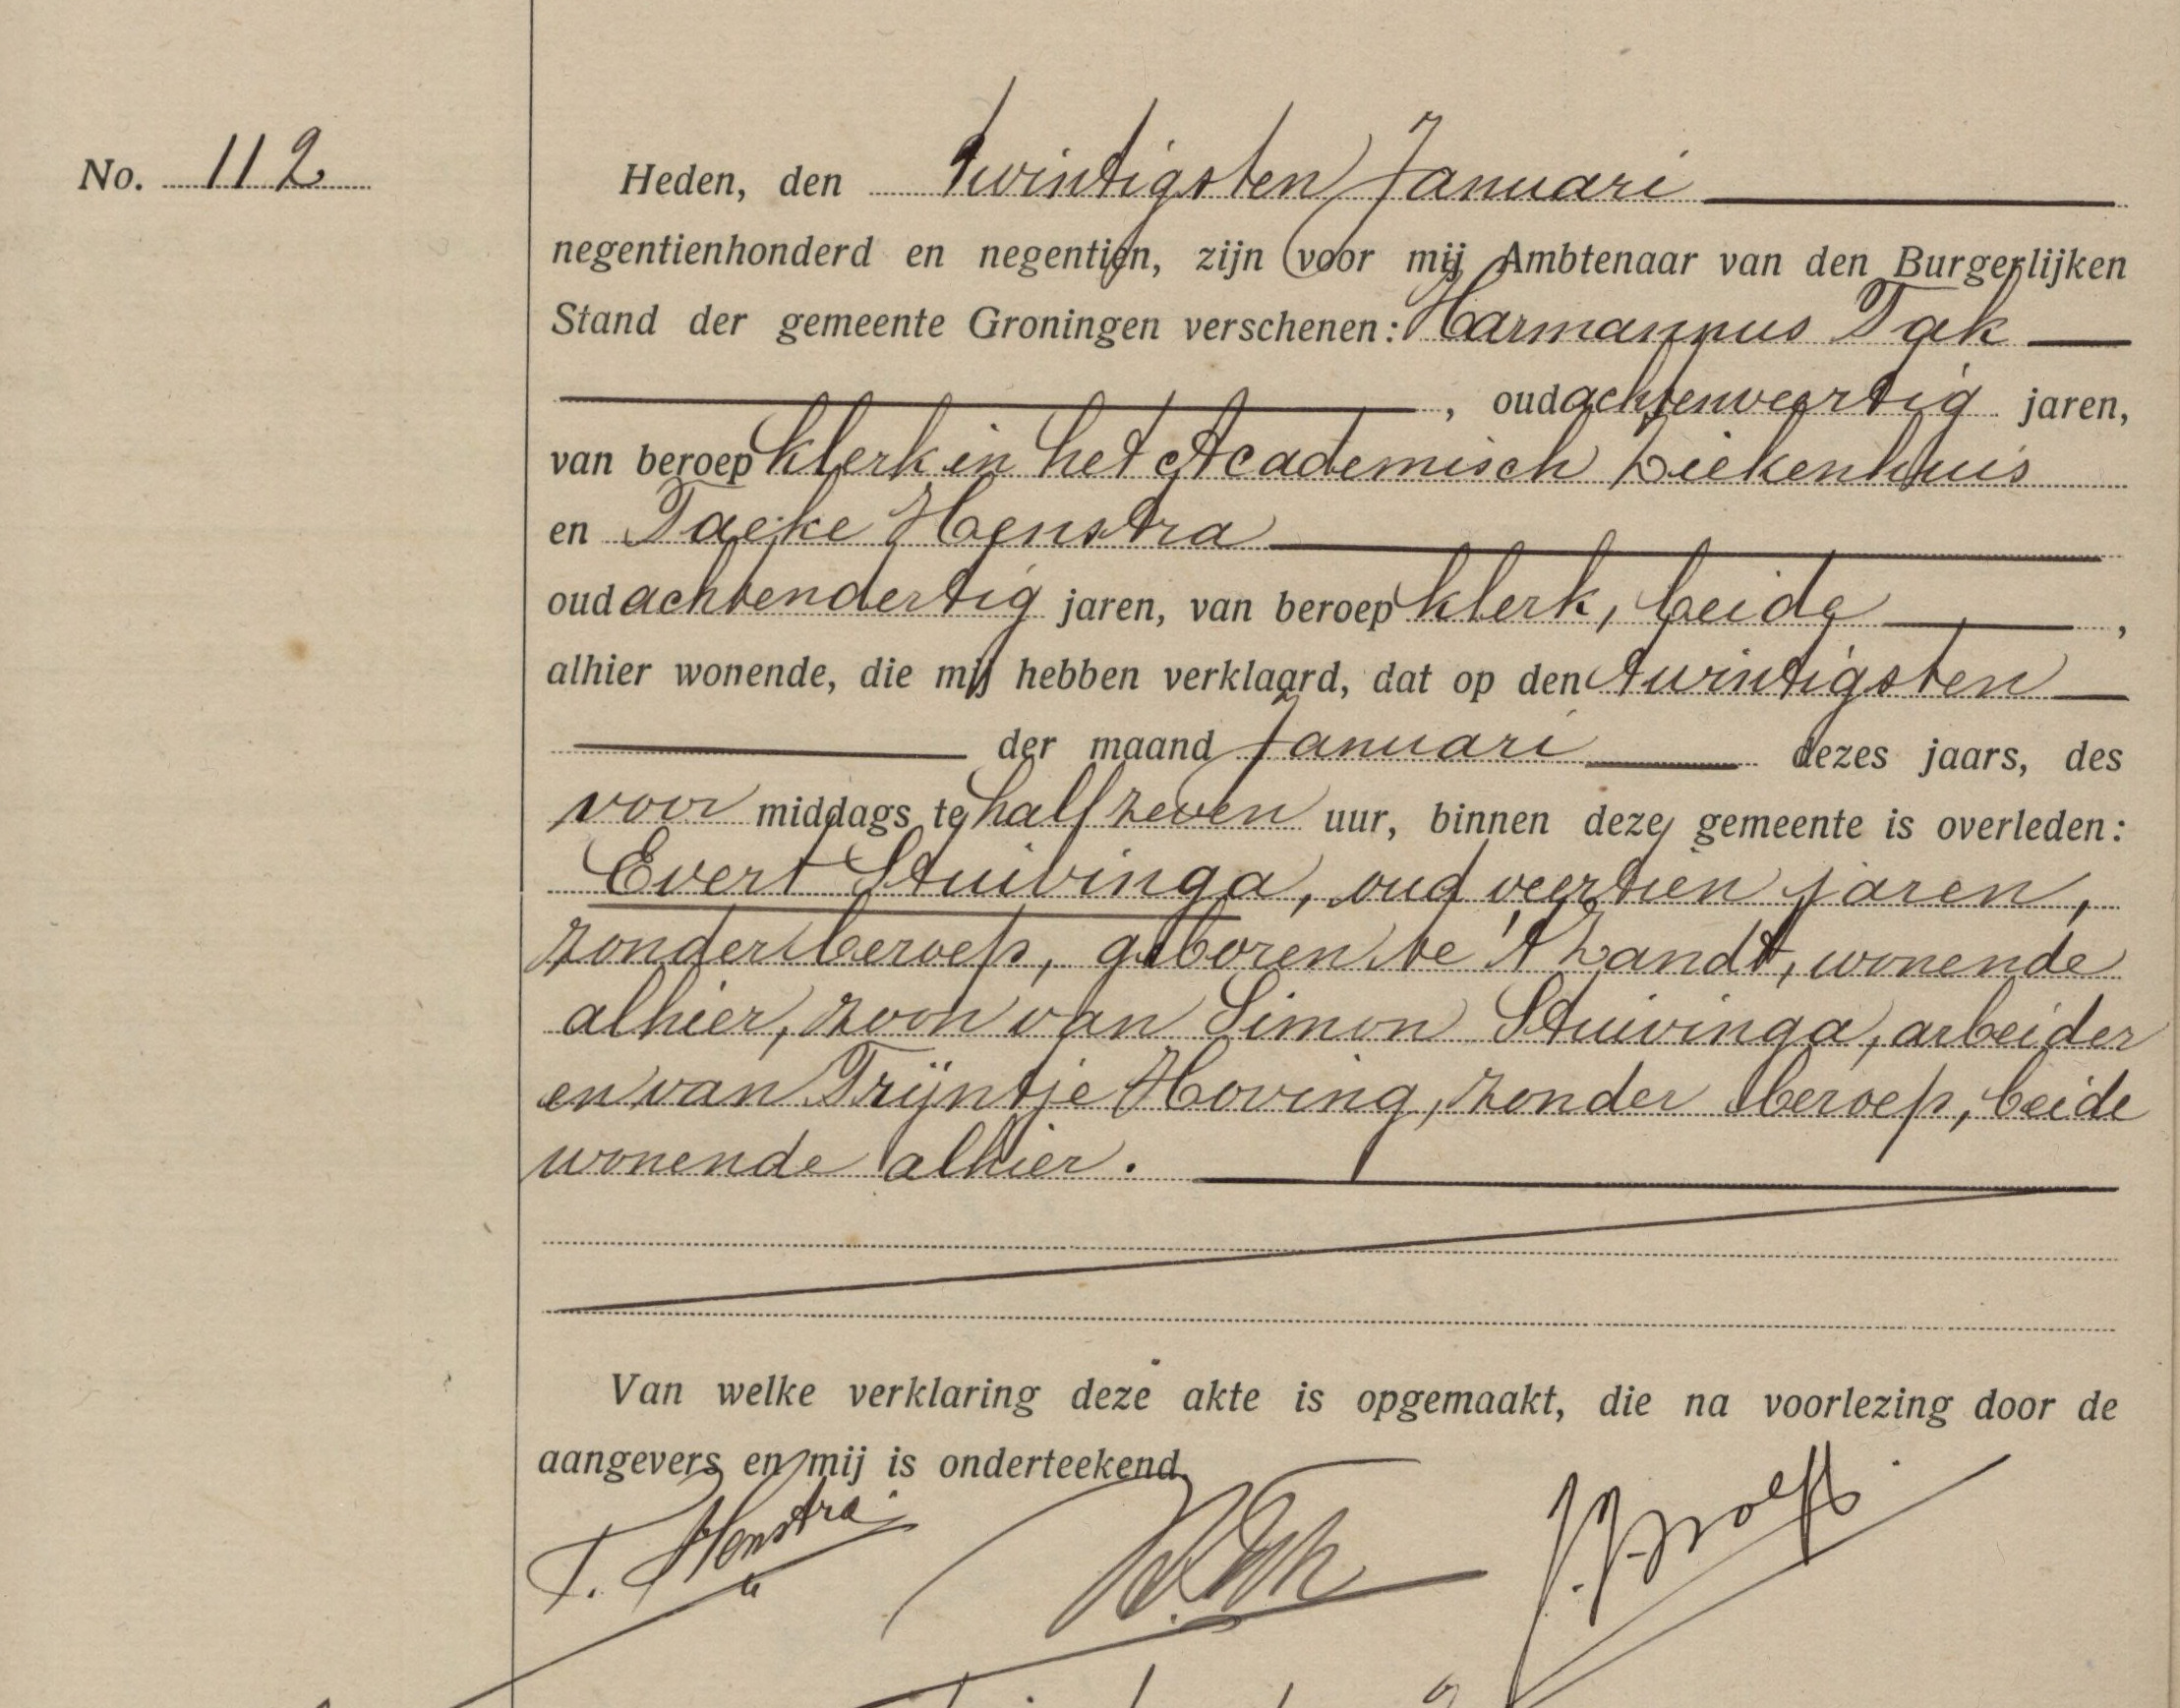 No. 112
Heden, den twintigsten Januari
negentienhonderd en negentien, zijn voor mij Ambtenaar van den Burgerlijken
Stand der gemeente Groningen verschenen: Harmannus Tak
, oud achtenveertig jaren,
van beroep klerk in het Academisch Ziekenhuis
en Taeke Henstra
oud achtendertig jaren, van beroep klerk, beide ,
alhier wonende, die mij hebben verklaard, dat op den twintigsten
der maand Januari dezes jaars, des
voor middags te half zeven uur, binnen deze gemeente is overleden:
Evert Stuivinga, oud veertien jaren,
zonder beroep, geboren te 't Zandt, wonende
alhier, zoon van Simon Stuivinga, arbeider
en van Trijntje Hoving, zonder beroep, beide
wonende alhier.
Van welke verklaring deze akte is opgemaakt, die na voorlezing door de
aangevers en mij is onderteekend.
T. Henstra H. Tak